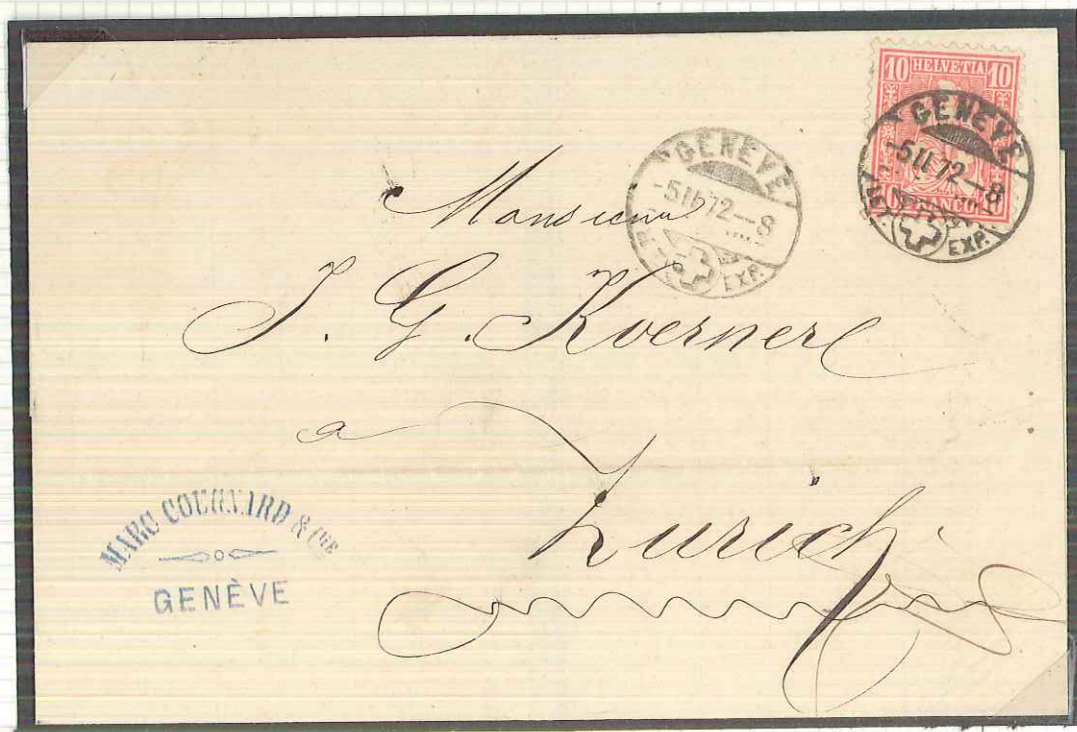 10 HELVETIA 10
FRANCO
GENEVE
-5 II 72-8
EXP.
GENEVE
-5 II 72-8
EXP.
Monsieur
J. G. Koerner
à
Zurich.
MARC COURVARD & CIE
GENÈVE